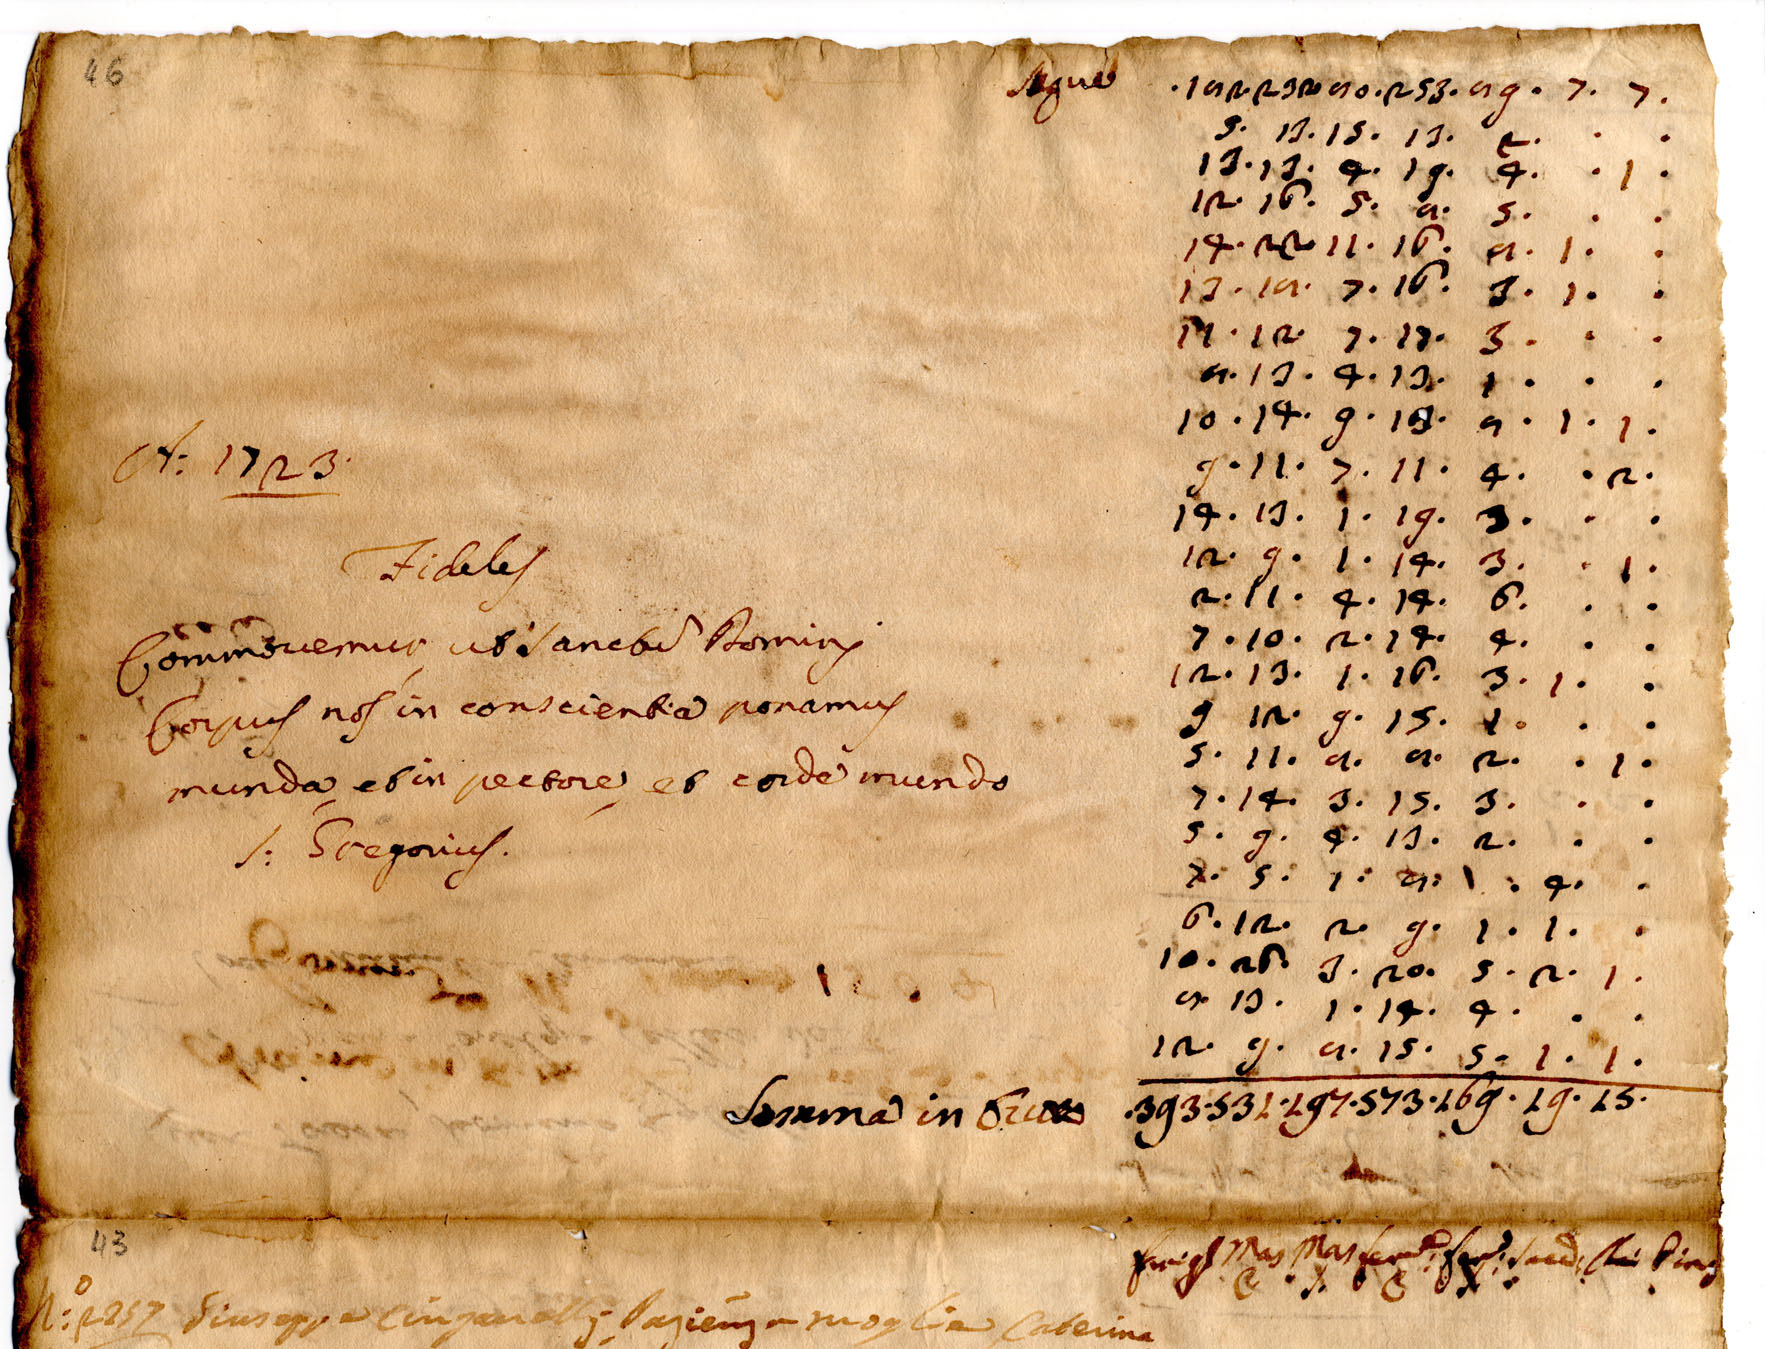 46
Segue · 182 · 232 · 80 · 253 · 89 · 7 · 7 ·
5 · 13 · 15 · 13 · 2 · · ·
13 · 13 · 4 · 19 · 4 · · 1 ·
12 · 16 · 5 · 8 · 5 · · ·
14 · 22 · 11 · 16 · 8 · 1 · ·
13 · 18 · 7 · 16 · 3 · 1 · ·
11 · 12 · 7 · 17 · 3 · · ·
8 · 13 · 4 · 13 · 1 · · ·
A: 1723 10 · 14 · 9 · 13 · 8 · 1 · 1 ·
9 · 11 · 7 · 11 · 4 · · 2 ·
14 · 13 · 1 · 19 · 3 · · ·
Fideles 12 · 9 · 1 · 14 · 3 · · 1 ·
2 · 11 · 4 · 14 · 6 · · ·
Commovemur, ut Sanctu Domini 7 · 10 · 2 · 14 · 4 · · ·
12 · 13 · 1 · 16 · 3 · 1 · ·
Corpus nos in conscientia ponamus 9 12 · 9 · 15 · 1 · · ·
5 · 11 · 8 · 8 · 2 · · 1 ·
munda, et in pectore, et corde mundo 7 · 14 · 3 · 15 · 3 · · ·
S: Gregorius. 5 · 9 · 4 · 13 · 2 · · ·
7 · 5 · 1 · 8 · 1 · 4 · ·
6 · 12 · 2 · 9 · 1 · 1 · ·
10 · 26 · 3 · 20 · 5 · 2 · 1 ·
8 · 13 · 1 · 14 · 4 · · ·
12 · 9 · 8 · 15 · 5 · 1 · 1 ·
Somma in tutto · 393 · 531 · 197 · 573 · 169 · 19 · 15 ·
43
Mas Mas
Giuseppe moglie Caterina